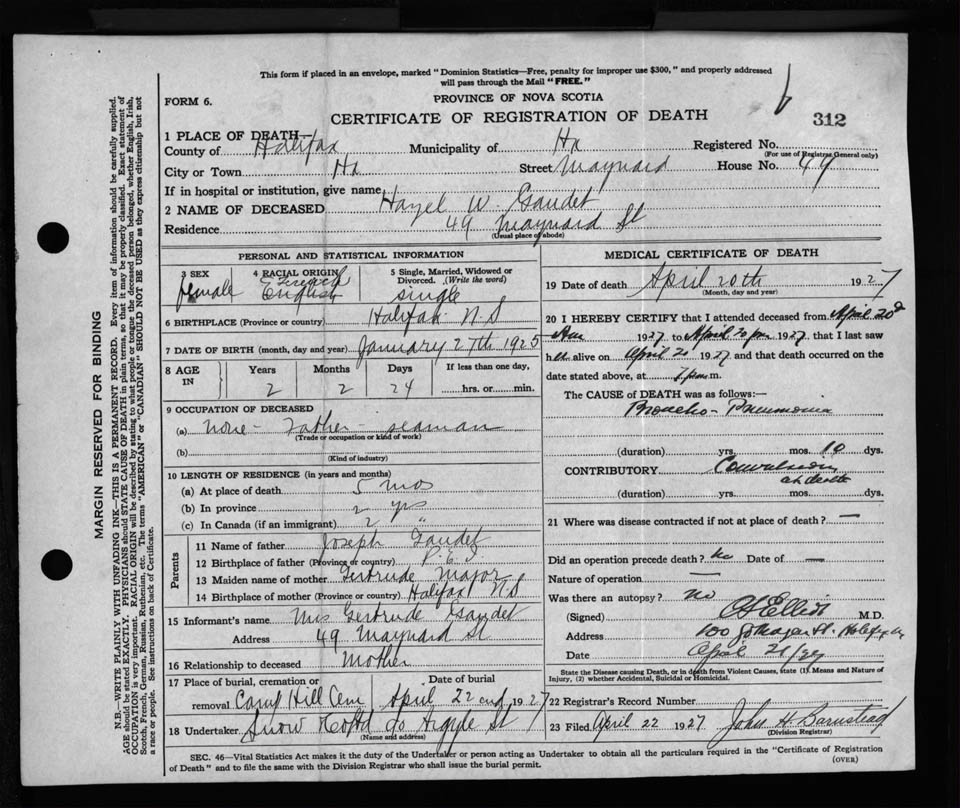 This form if placed in an envelope, marked "Dominion Statistics—Free, penalty for improper use $300," and properly addressed
will pass through the Mail "FREE."
FORM 6.
PROVINCE OF NOVA SCOTIA
CERTIFICATE OF REGISTRATION OF DEATH
312
1 PLACE OF DEATH—
County of Halifax Municipality of Hx Registered No.
(For use of Registrar General only)
City or Town Hx Street Maynard House No. 49
If in hospital or institution, give name
2 NAME OF DECEASED Hazel W. Gaudet
Residence 49 Maynard St
(Usual place of abode)
PERSONAL AND STATISTICAL INFORMATION
3 SEX female
4 RACIAL ORIGIN French English
5 Single, Married, Widowed or Divorced. (Write the word) single
6 BIRTHPLACE (Province or country) Halifax N.S
7 DATE OF BIRTH (month, day and year) January 27th 1925
8 AGE IN Years Months Days If less than one day,
2 2 24 hrs. or min.
9 OCCUPATION OF DECEASED
(a) none - Father - seaman
(Trade or occupation or kind of work)
(b)
(Kind of industry)
10 LENGTH OF RESIDENCE (in years and months)
(a) At place of death 5 mos
(b) In province 2 yrs
(c) In Canada (if an immigrant) 2 "
Parents
11 Name of father Joseph Gaudet
12 Birthplace of father (Province or country) P.E.I
13 Maiden name of mother Gertrude Major
14 Birthplace of mother (Province or country) Halifax N S
15 Informant's name Mrs Gertrude Gaudet
Address 49 Maynard St
16 Relationship to deceased Mother
17 Place of burial, cremation or removal Camp Hill Cem Date of burial April 22 and 1927
18 Undertaker Snow & Co Ltd 90 Argyle St
(Name and address)
MEDICAL CERTIFICATE OF DEATH
19 Date of death April 20th 1927
(Month, day and year)
20 I HEREBY CERTIFY that I attended deceased from April 20
Am 1927 to April 20 pm 1927 that I last saw
h er alive on April 20 1927 and that death occurred on the
date stated above, at 7 pm m.
The CAUSE OF DEATH was as follows:—
Broncho-Pneumonia
(duration) yrs. mos. 10 dys.
CONTRIBUTORY Convulsion
at death
(duration) yrs. mos. dys.
21 Where was disease contracted if not at place of death? —
Did an operation precede death? No Date of —
Nature of operation —
Was there an autopsy? no
(Signed) Elliot M.D.
Address 100 Gottingen St. Halifax
Date April 21/27
State the Disease causing Death, or in death from Violent Causes, state (1) Means and Nature of
Injury, (2) whether Accidental, Suicidal or Homicidal.
22 Registrar's Record Number
23 Filed April 22 1927 John H Barnstead
(Division Registrar)
SEC. 46—Vital Statistics Act makes it the duty of the Undertaker or person acting as Undertaker to obtain all the particulars required in the "Certificate of Registration
of Death" and to file the same with the Division Registrar who shall issue the burial permit.
(OVER)
MARGIN RESERVED FOR BINDING
N.B.—WRITE PLAINLY WITH UNFADING INK—THIS IS A PERMANENT RECORD. Every item of information should be carefully supplied.
AGE should be stated EXACTLY. PHYSICIANS should STATE CAUSE OF DEATH in plain terms, so that it may be properly classified. Exact statement of
OCCUPATION is very important. RACIAL ORIGIN will be described by stating to what people or tongue the deceased person belonged, whether English, Irish,
Scotch, French, German, Russian, Ruthenian, etc. The terms "AMERICAN" or "CANADIAN" SHOULD NOT BE USED as they express citizenship but not
a race or people. See instructions on back of Certificate.